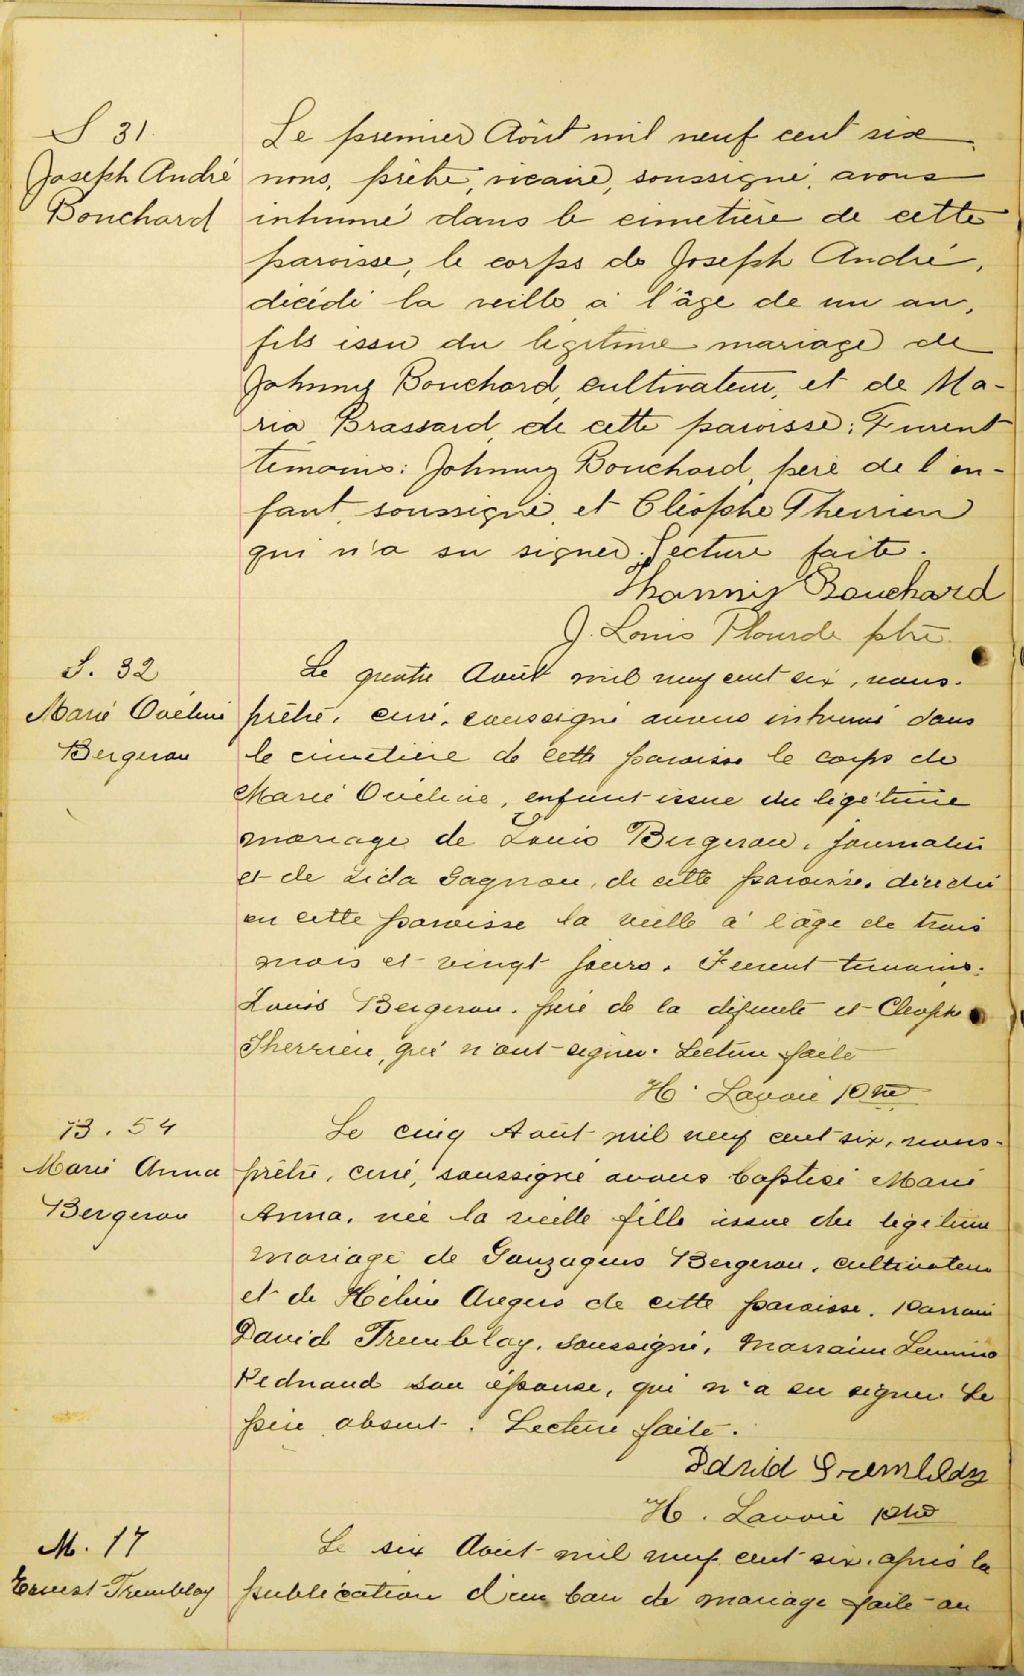 S 31
Joseph André
Bouchard
Le premier Août mil neuf cent six
nous, prêtre, vicaire, soussigné, avons
inhumé dans le cimetière de cette
paroisse, le corps de Joseph André,
décédé la veille à l'âge de un an,
fils issu du légitime mariage de
Johnny Bouchard, cultivateur, et de Ma-
ria Brassard, de cette paroisse; Furent
temoins: Johnny Bouchard, père de l'en-
fant, soussigné, et Cléophe Therrien
qui n'a su signer. Lecture faite.
Bouchard
J. Louis Plourde ptre.
S. 32
Marie Ovéline
Bergeron
Le quatre Août mil neuf cent six, nous.
prêtre, curé, soussigné avons inhumé dans
le cimetière de cette paroisse le corps de
Marie Ovéline, enfant issue du légitime
mariage de Louis Bergeron, journalier
et de Lida Gagnon, de cette paroisse, décédée
en cette paroisse la veille à l'âge de trois
mois et vingt jours. Furent temoins:
Louis Bergeron, père de la défunte et Cleophe
Therrien, qui n'ont signer. Lecture faite
H. Lavoie Ptre
B. 54
Marie Anna
Bergeron
Le cinq Août mil neuf cent six, nous-
prêtre, curé, soussigné avons baptisé Marie
Anna, née la vieille fille issue du légitime
mariage de Gonzagues Bergeron, cultivateur
et de Hélène Angers de cette paroisse. Parrain
David Tremblay, soussigné, Marraine
son épouse, qui n'a su signer Le
père absent. Lecture faite.
David Tremblay
H. Lavoie ptre
M. 17
Ernest Tremblay
Le six Août mil neuf cent six, après la
publication d'un ban de mariage faite au